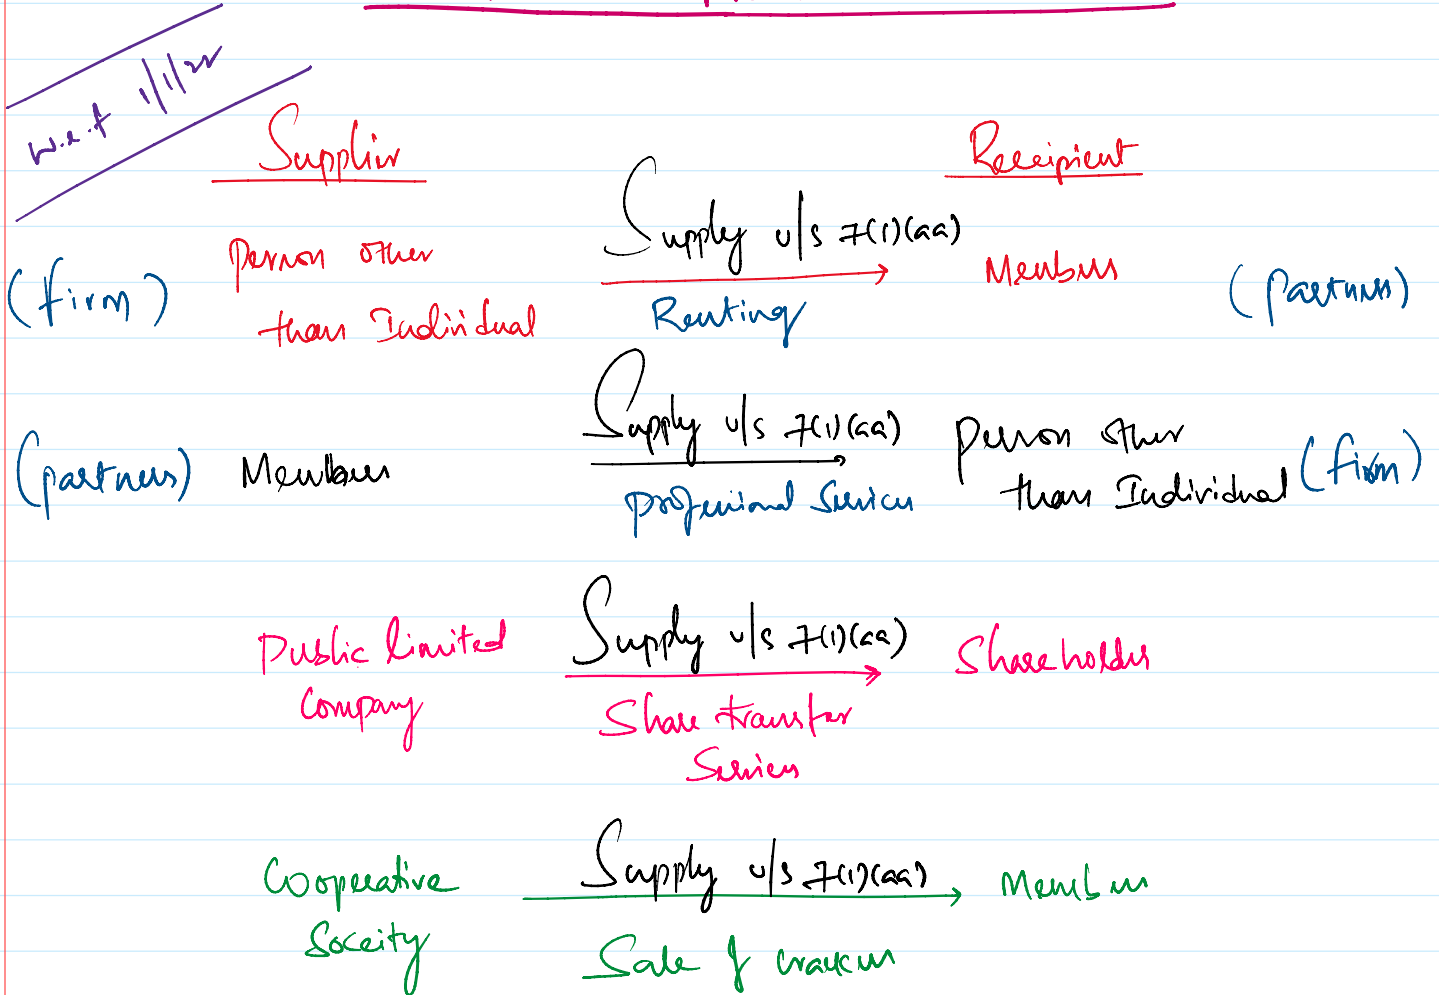 w.e.f 1/1/22
Supplier
Receipient
Supply u/s 7(1)(aa)
person other
than Individual
(firm)
Renting
Members
(partners)
Supply u/s 7(1)(aa)
(partners) Members
professional Services
person other
than Individual (firm)
Public limited
Company
Supply u/s 7(1)(aa)
Share transfer
Services
Shareholder
Cooperative
Soceity
Supply u/s 7(1)(aa)
Sale of crackers
Members